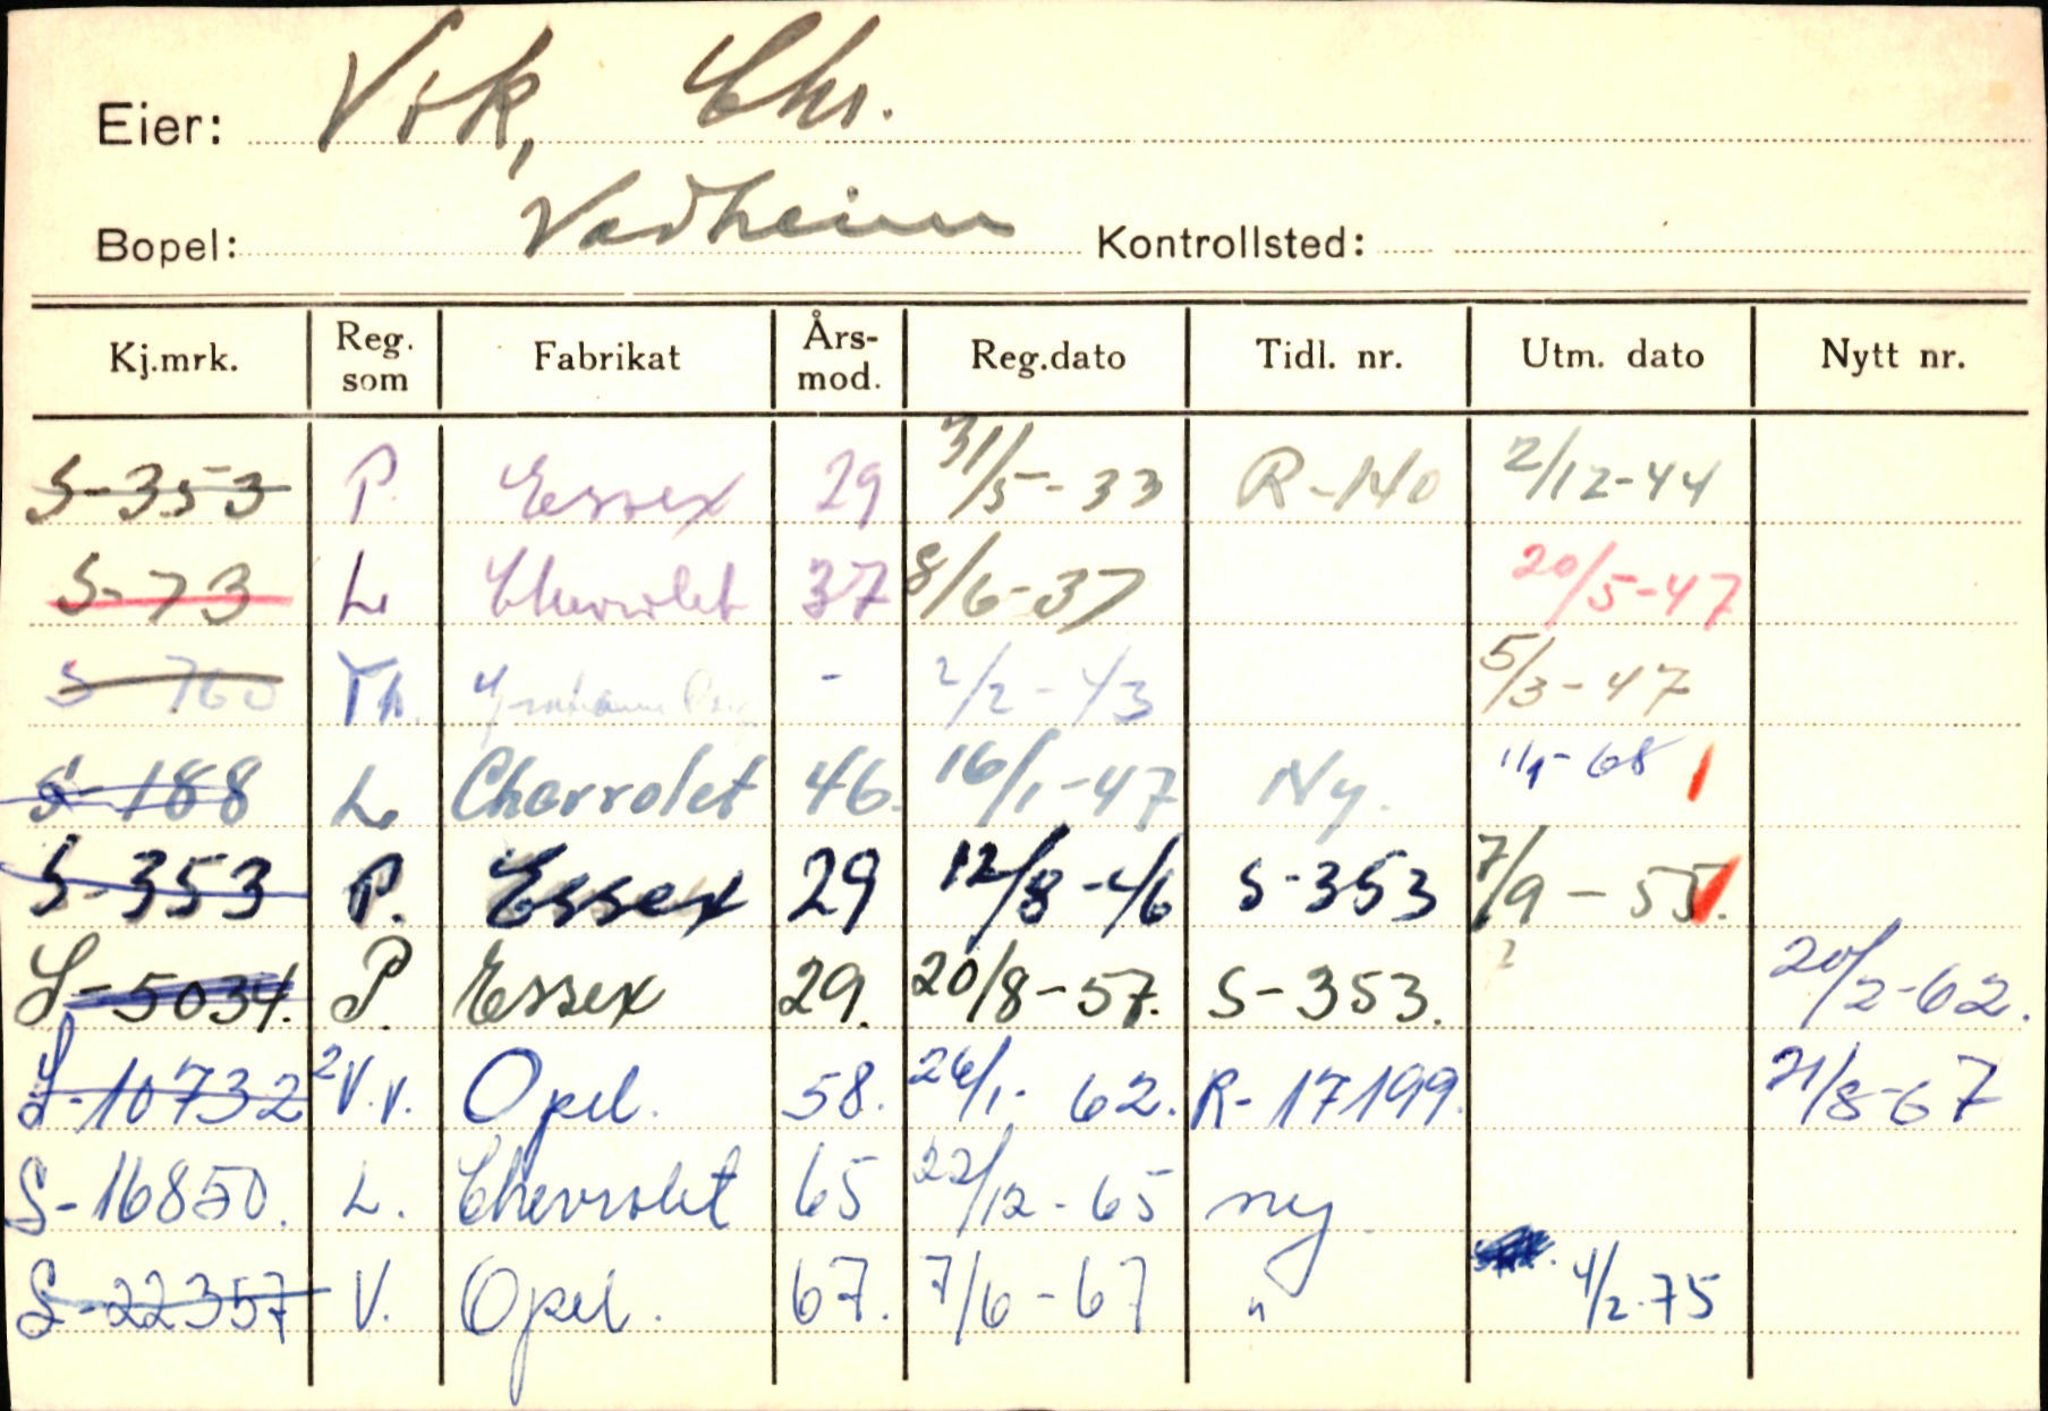 Eier: Vik, Chr.
Bopel: Vadheim Kontrollsted:
Kj.mrk. Reg. som Fabrikat Års-mod. Reg.dato Tidl. nr. Utm. dato Nytt nr.
S-353 P. Essex 29 31/5-33 R-140 2/12-44
S-73 L. Chevrolet 37 8/6-37 20/5-47
S-760 - 2/2-43 5/3-47
S-188 L. Chevrolet 46. 16/1-47 Ny. 1/1-68
S-353 P. Essex 29 12/8-46 S-353 7/9-55.
S-5034. P. Essex 29. 20/8-57. S-353. 20/2-62.
S-10732 2 V.v. Opel. 58. 26/1-62. R-17199. 21/8-67
S-16850. L. Chevrolet 65 22/12-65 ny
S-22357 V. Opel. 67. 7/6-67 " 4/2-75